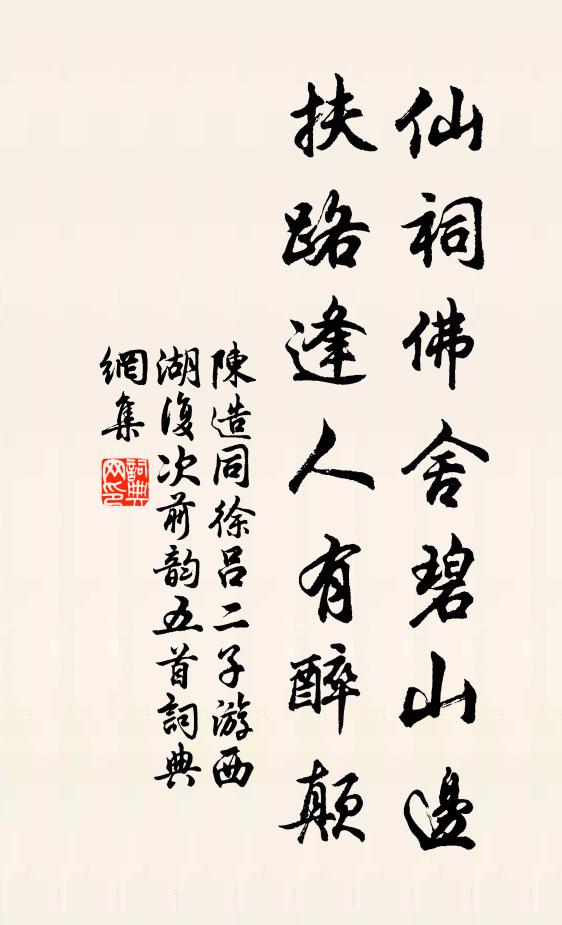 仙祠佛舍碧山邊
扶路逢人有醉顛
陳造同徐呂二子游西
湖復次前韵五首詞典
網集
詞典網印